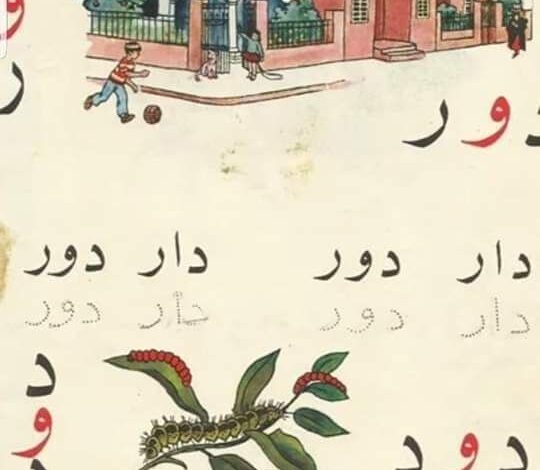 دور
دار دور دار دور
دار دور دار دور
دود